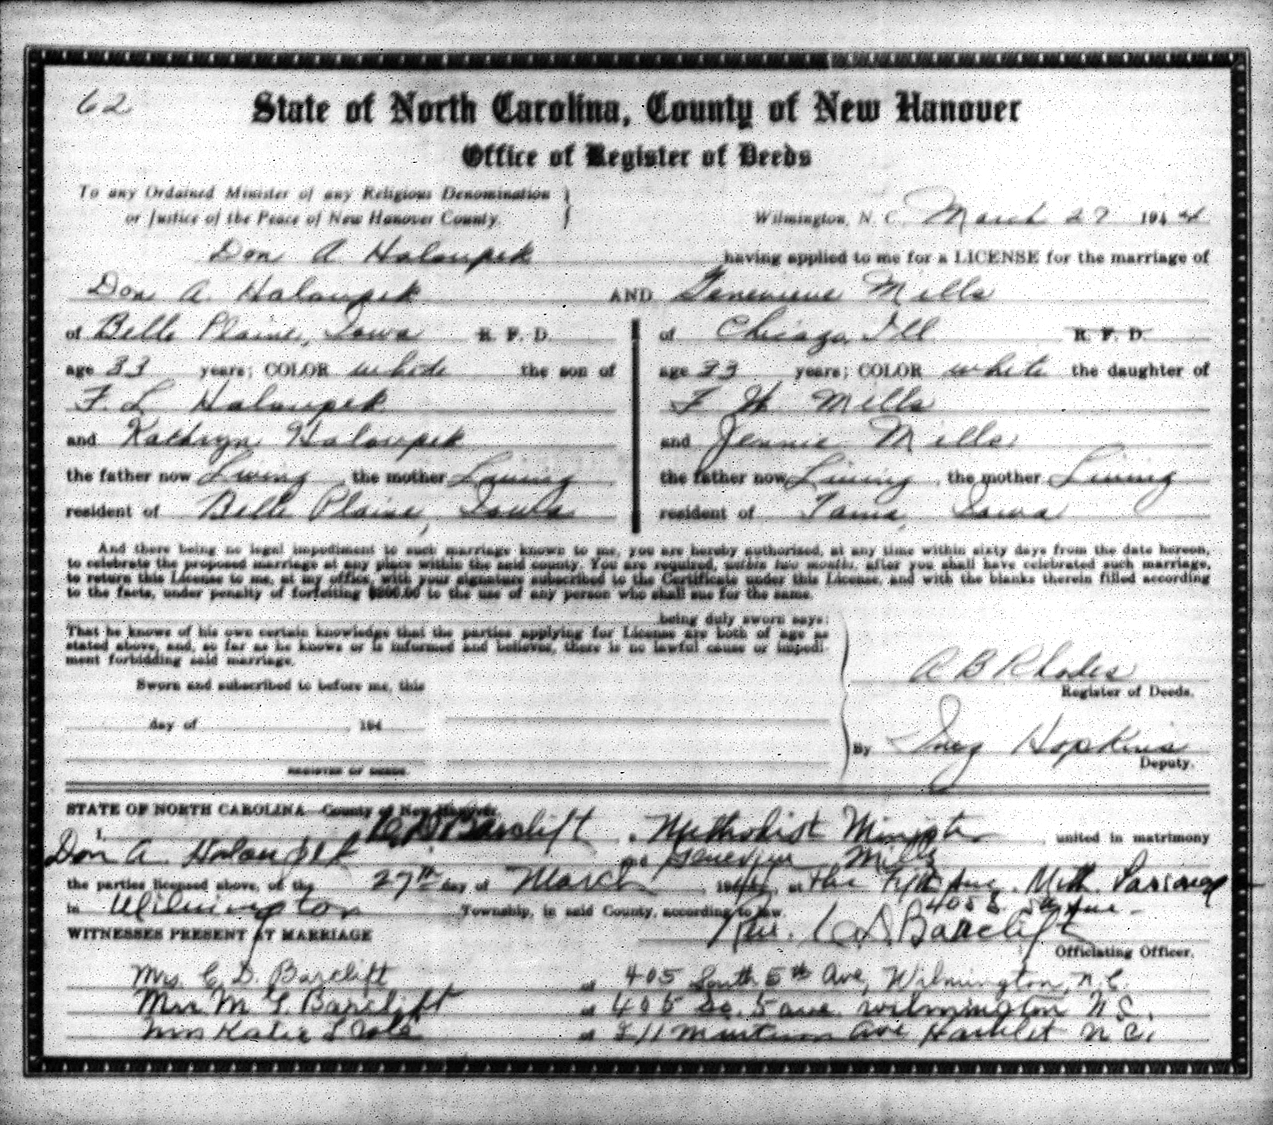 62
State of North Carolina, County of New Hanover
Office of Register of Deeds
To any Ordained Minister of any Religious Denomination
or Justice of the Peace of New Hanover County.
Wilmington, N. C. March 27 1944
Don A Haloupek having applied to me for a LICENSE for the marriage of
Don A. Haloupek AND Genevieve Mills
of Belle Plaine, Iowa R. F. D. of Chicago Ill R. F. D.
age 33 years; COLOR white the son of age 33 years; COLOR white the daughter of
F. L Haloupek F W Mills
and Kathryn Haloupek and Jennie Mills
the father now Living, the mother Living the father now Living, the mother Living
resident of Belle Plaine, Iowa resident of Tama, Iowa
And there being no legal impediment to such marriage known to me, you are hereby authorized, at any time within sixty days from the date hereon,
to celebrate the proposed marriage at any place within the said county. You are required, within two months, after you shall have celebrated such marriage,
to return this License to me, at my office, with your signature subscribed to the Certificate under this License, and with the blanks therein filled according
to the facts, under penalty of forfeiting $200.00 to the use of any person who shall sue for the same.
being duly sworn says:
That he knows of his own certain knowledge that the parties applying for License are both of age as
stated above, and, so far as he knows or is informed and believes, there is no lawful cause or impedi-
ment forbidding said marriage.
Sworn and subscribed to before me, this
day of , 194
REGISTER OF DEEDS.
A B Rhodes
Register of Deeds.
By Inez Hopkins
Deputy.
STATE OF NORTH CAROLINA—County of New Hanover.
I, C D Barclift, Methodist Minister, united in matrimony
Don A. Haloupek and Genevieve Mills
the parties licensed above, on the 27th day of March, 1944, at the Fifth Ave. Meth. Parsonage
405 S. 5th Ave.
in Wilmington Township, in said County, according to law.
Rev. C D Barclift
WITNESSES PRESENT AT MARRIAGE
Officiating Officer.
Mrs. C. D. Barclift at 405 South 5th Ave, Wilmington, N.C.
Mrs. M. G. Barclift at 405 So. 5 ave. Wilmington N.C.
Mrs Katie L at Ave Hamlet N.C.